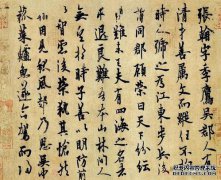 張翰字季鷹吳郡人有
清才善屬文而縱任不
時人號之為江東步兵後
謂同郡顧榮曰天下紛紜
難未已夫有四海之名者
求退良難吾本山林間人
無望於時子善以明防前
以智慮後榮執其愴然
翰因見秋風起乃思吳中
菰菜鱸魚遂命駕而歸